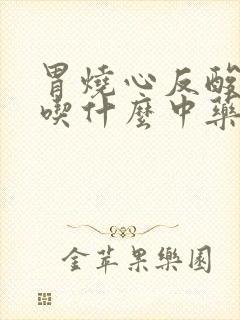 胃燒心反酸
喫什麽中藥
金苹果樂園